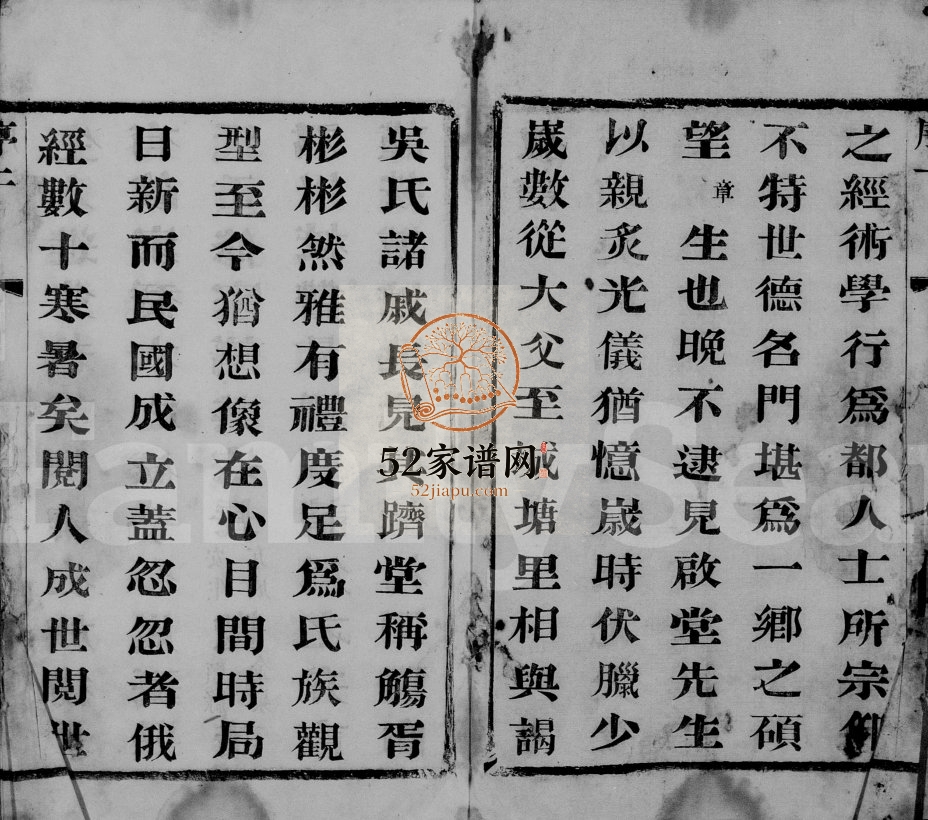 之經術學行爲都人士所宗仰
不特世德名門堪爲一鄉之碩
望章生也晚不逮見啟堂先生
以親炙光儀猶憶歲時伏臘少
歲數從大父至誠塘里相與謁
吳氏諸戚長見其躋堂稱觴胥
彬彬然雅有禮度足爲氏族觀
型至今猶想像在心目間時局
日新而民國成立蓋忽忽者俄
經數十寒暑矣閱人成世閱世
52家谱网
52jiapu.com